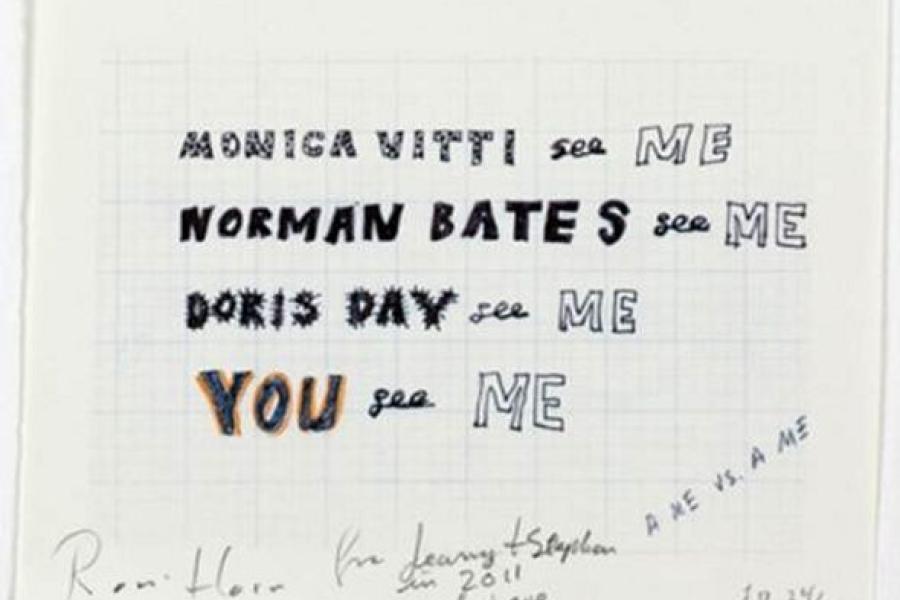 MONICA VITTI see ME
NORMAN BATES see ME
DORIS DAY see ME
YOU see ME
A ME VS. A ME
Roni Horn for Jeanny + Stephen
in 2011